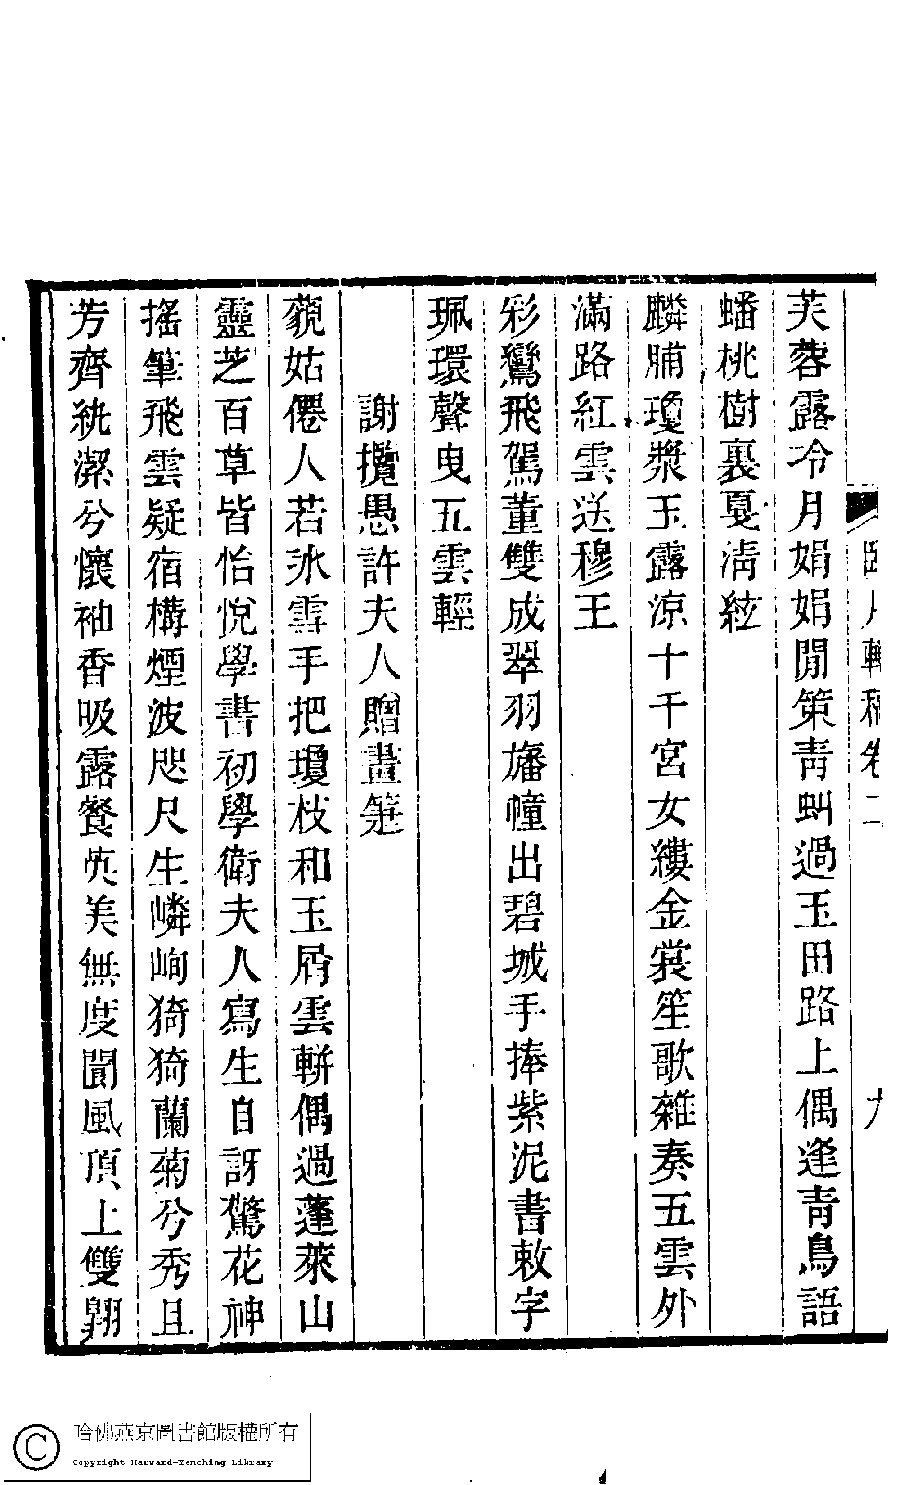 芙蓉露冷月娟娟閒策青虯過玉田路上偶逢青鳥語
蟠桃樹裏戛清絃
麟脯瓊漿玉露涼十千宮女縷金裳笙歌雜奏五雲外
滿路紅雲送穆王
彩鸞飛駕董雙成翠羽旛幢出碧城手捧紫泥書敕字
珮環聲曳五雲輕
謝攬愚許夫人贈畫箑
藐姑僊人若冰雪手把瓊枝和玉屑雲輧偶過蓬萊山
靈芝百草皆怡悅學書初學衛夫人寫生自訝驚花神
搖筆飛雲疑宿構煙波咫尺生嶙峋猗猗蘭菊兮秀且
芳齊紈潔兮懷袖香吸露餐英美無度閬風頂上雙翱
卷二
九
哈佛燕京圖書館版權所有
Copyright Harvard-Yenching Library